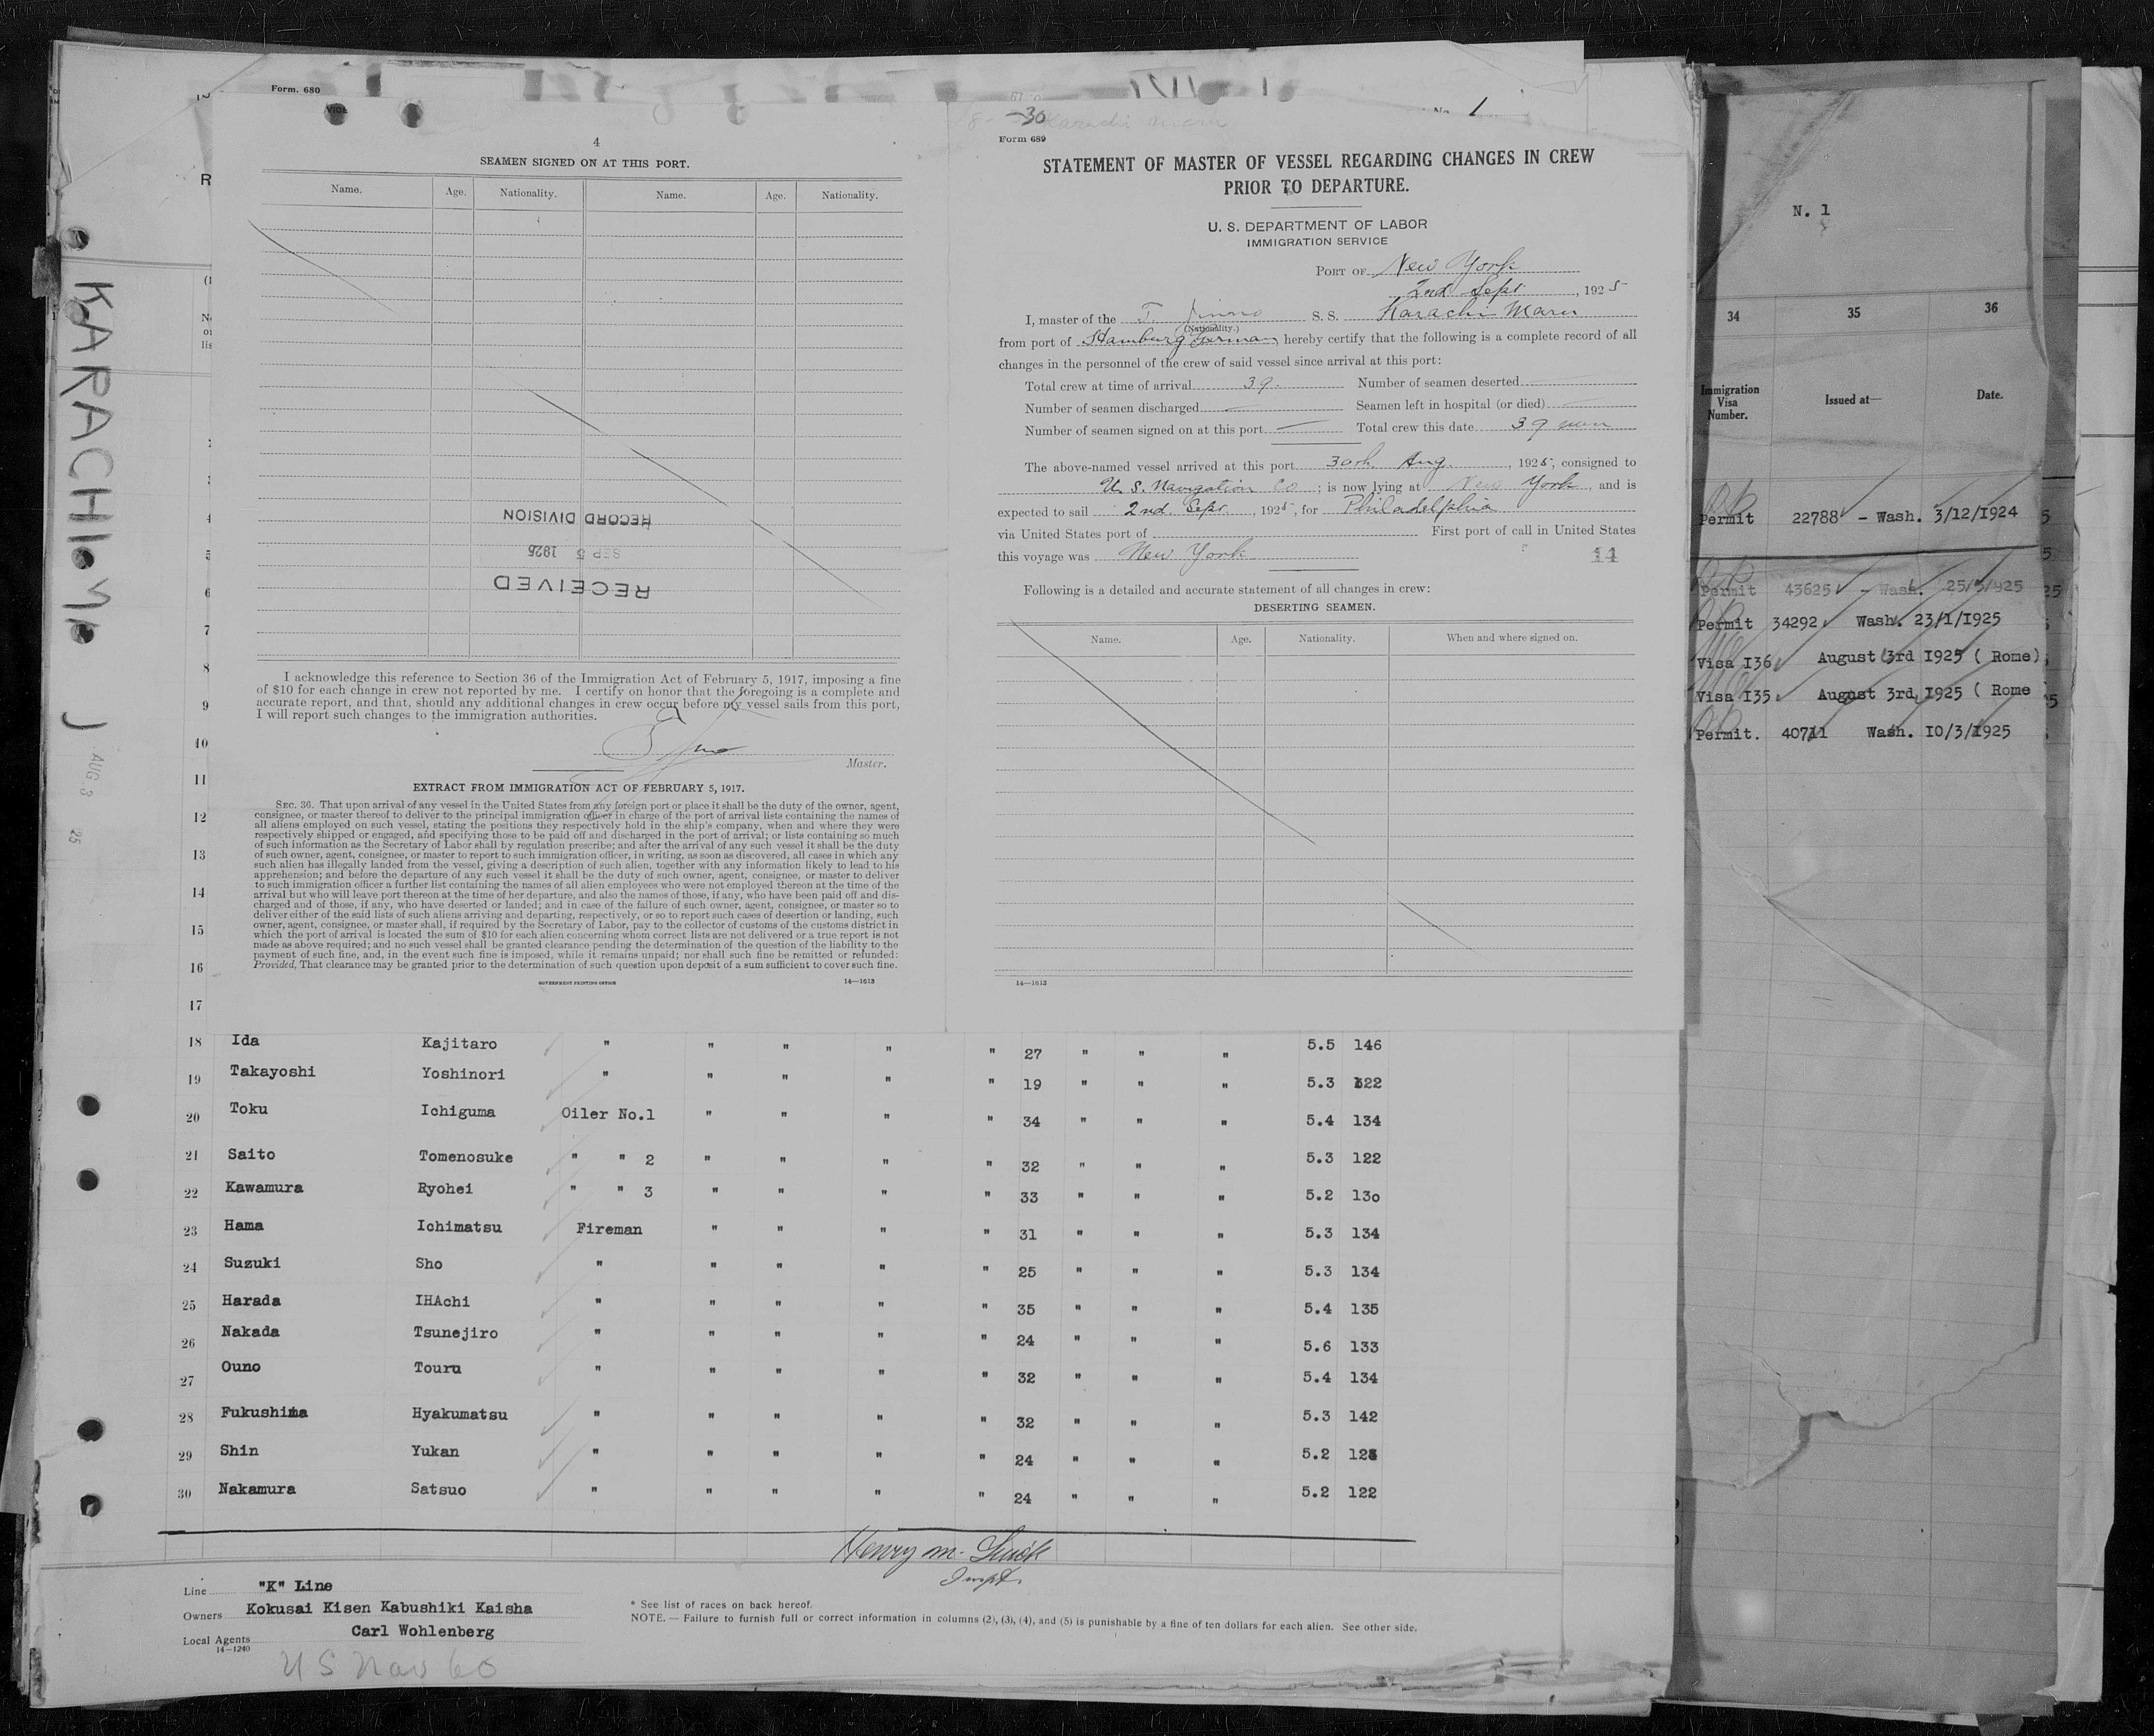 Form. 680
4
SEAMEN SIGNED ON AT THIS PORT.
Name. Age. Nationality. Name. Age. Nationality.
RECEIVED
SEP 5 1925
RECORD DIVISION
I acknowledge this reference to Section 36 of the Immigration Act of February 5, 1917, imposing a fine
of $10 for each change in crew not reported by me. I certify on honor that the foregoing is a complete and
accurate report, and that, should any additional changes in crew occur before my vessel sails from this port,
I will report such changes to the immigration authorities.
Master.
EXTRACT FROM IMMIGRATION ACT OF FEBRUARY 5, 1917.
SEC. 36. That upon arrival of any vessel in the United States from any foreign port or place it shall be the duty of the owner, agent,
consignee, or master thereof to deliver to the principal immigration officer in charge of the port of arrival lists containing the names of
all aliens employed on such vessel, stating the positions they respectively hold in the ship's company, when and where they were
respectively shipped or engaged, and specifying those to be paid off and discharged in the port of arrival; or lists containing so much
of such information as the Secretary of Labor shall by regulation prescribe; and after the arrival of any such vessel it shall be the duty
of such owner, agent, consignee, or master to report to such immigration officer, in writing, as soon as discovered, all cases in which any
such alien has illegally landed from the vessel, giving a description of such alien, together with any information likely to lead to his
apprehension; and before the departure of any such vessel it shall be the duty of such owner, agent, consignee, or master to deliver
to such immigration officer a further list containing the names of all alien employees who were not employed thereon at the time of the
arrival but who will leave port thereon at the time of her departure, and also the names of those, if any, who have been paid off and dis-
charged and of those, if any, who have deserted or landed; and in case of the failure of such owner, agent, consignee, or master so to
deliver either of the said lists of such aliens arriving and departing, respectively, or so to report such cases of desertion or landing, such
owner, agent, consignee, or master shall, if required by the Secretary of Labor, pay to the collector of customs of the customs district in
which the port of arrival is located the sum of $10 for each alien concerning whom correct lists are not delivered or a true report is not
made as above required; and no such vessel shall be granted clearance pending the determination of the question of the liability to the
payment of such fine, and, in the event such fine is imposed, while it remains unpaid; nor shall such fine be remitted or refunded:
Provided, That clearance may be granted prior to the determination of such question upon deposit of a sum sufficient to cover such fine.
GOVERNMENT PRINTING OFFICE 14—1613
-30 Karachi Maru
No. 1
Form 689
STATEMENT OF MASTER OF VESSEL REGARDING CHANGES IN CREW
PRIOR TO DEPARTURE.
U. S. DEPARTMENT OF LABOR
IMMIGRATION SERVICE
PORT OF New York
2nd Sept, 1925
I, master of the T. S. S. Karachi Maru
(Nationality.)
from port of Hamburg German, hereby certify that the following is a complete record of all
changes in the personnel of the crew of said vessel since arrival at this port:
Total crew at time of arrival 39. Number of seamen deserted
Number of seamen discharged Seamen left in hospital (or died)
Number of seamen signed on at this port Total crew this date 39 men
The above-named vessel arrived at this port 30th Aug., 1925, consigned to
U. S. Navigation Co; is now lying at New York, and is
expected to sail 2nd Sept, 1925, for Philadelphia
via United States port of First port of call in United States
this voyage was New York
14
Following is a detailed and accurate statement of all changes in crew:
DESERTING SEAMEN.
Name. Age. Nationality. When and where signed on.
14—1613
KARACHI MARU
AUG 3
25
4
5
6
7
8
9
10
11
12
13
14
15
16
17
18 Ida Kajitaro " " " " " 27 " " " 5.5 146
19 Takayoshi Yoshinori " " " " " 19 " " " 5.3 122
20 Toku Ichiguma Oiler No.1 " " " " 34 " " " 5.4 134
21 Saito Tomenosuke " " 2 " " " " 32 " " " 5.3 122
22 Kawamura Ryohei " " 3 " " " " 33 " " " 5.2 130
23 Hama Ichimatsu Fireman " " " " 31 " " " 5.3 134
24 Suzuki Sho " " " " " 25 " " " 5.3 134
25 Harada IHAchi " " " " " 35 " " " 5.4 135
26 Nakada Tsunejiro " " " " " 24 " " " 5.6 133
27 Ouno Touru " " " " " 32 " " " 5.4 134
28 Fukushima Hyakumatsu " " " " " 32 " " " 5.3 142
29 Shin Yukan " " " " " 24 " " " 5.2
30 Nakamura Satsuo " " " " " 24 " " " 5.2 122
Henry M.
Inspt.
Line "K" Line
Owners Kokusai Kisen Kabushiki Kaisha
Local Agents Carl Wohlenberg
14—1240
U S Nav Co
* See list of races on back hereof.
NOTE.—Failure to furnish full or correct information in columns (2), (3), (4), and (5) is punishable by a fine of ten dollars for each alien. See other side.
N. 1
34 35 36
Immigration Visa Number. Issued at— Date.
Permit 22788 - Wash. 3/12/1924
Permit 43625 - Wash. 25/5/925
Permit 34292 Wash. 23/1/1925
Visa I36 August 3rd 1925 ( Rome)
Visa I35 August 3rd 1925 ( Rome
Permit. 40711 Wash. 10/3/1925